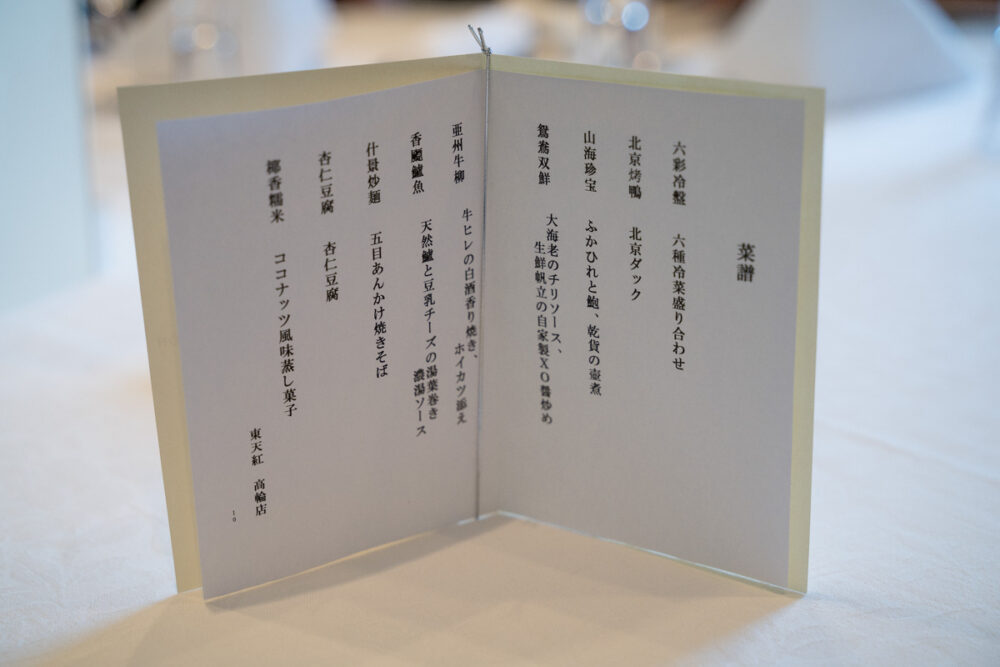 菜譜
六彩冷盤 六種冷菜盛り合わせ
北京烤鴨 北京ダック
山海珍宝 ふかひれと鮑、乾貨の壺煮
鴛鴦双鮮 大海老のチリソース、
生鮮帆立の自家製XO醬炒め
亜州牛柳 牛ヒレの白酒香り焼き、
ホイカツ添え
香颸鱸魚 天然鱸と豆乳チーズの湯葉巻き
濃湯ソース
什景炒麺 五目あんかけ焼きそば
杏仁豆腐 杏仁豆腐
椰香糯米 ココナッツ風味蒸し菓子
東天紅 高輪店
10